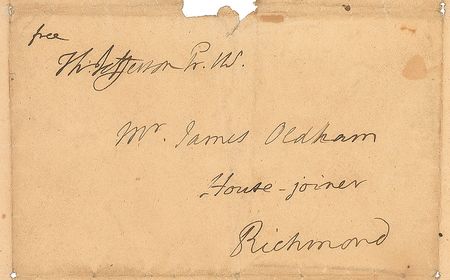 free
Th: Jefferson Pr. US.
Mr. James Oldham
House-joiner
Richmond